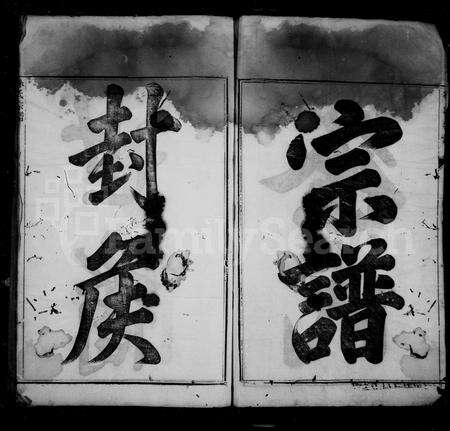 宗譜
封矦
FamilySearch